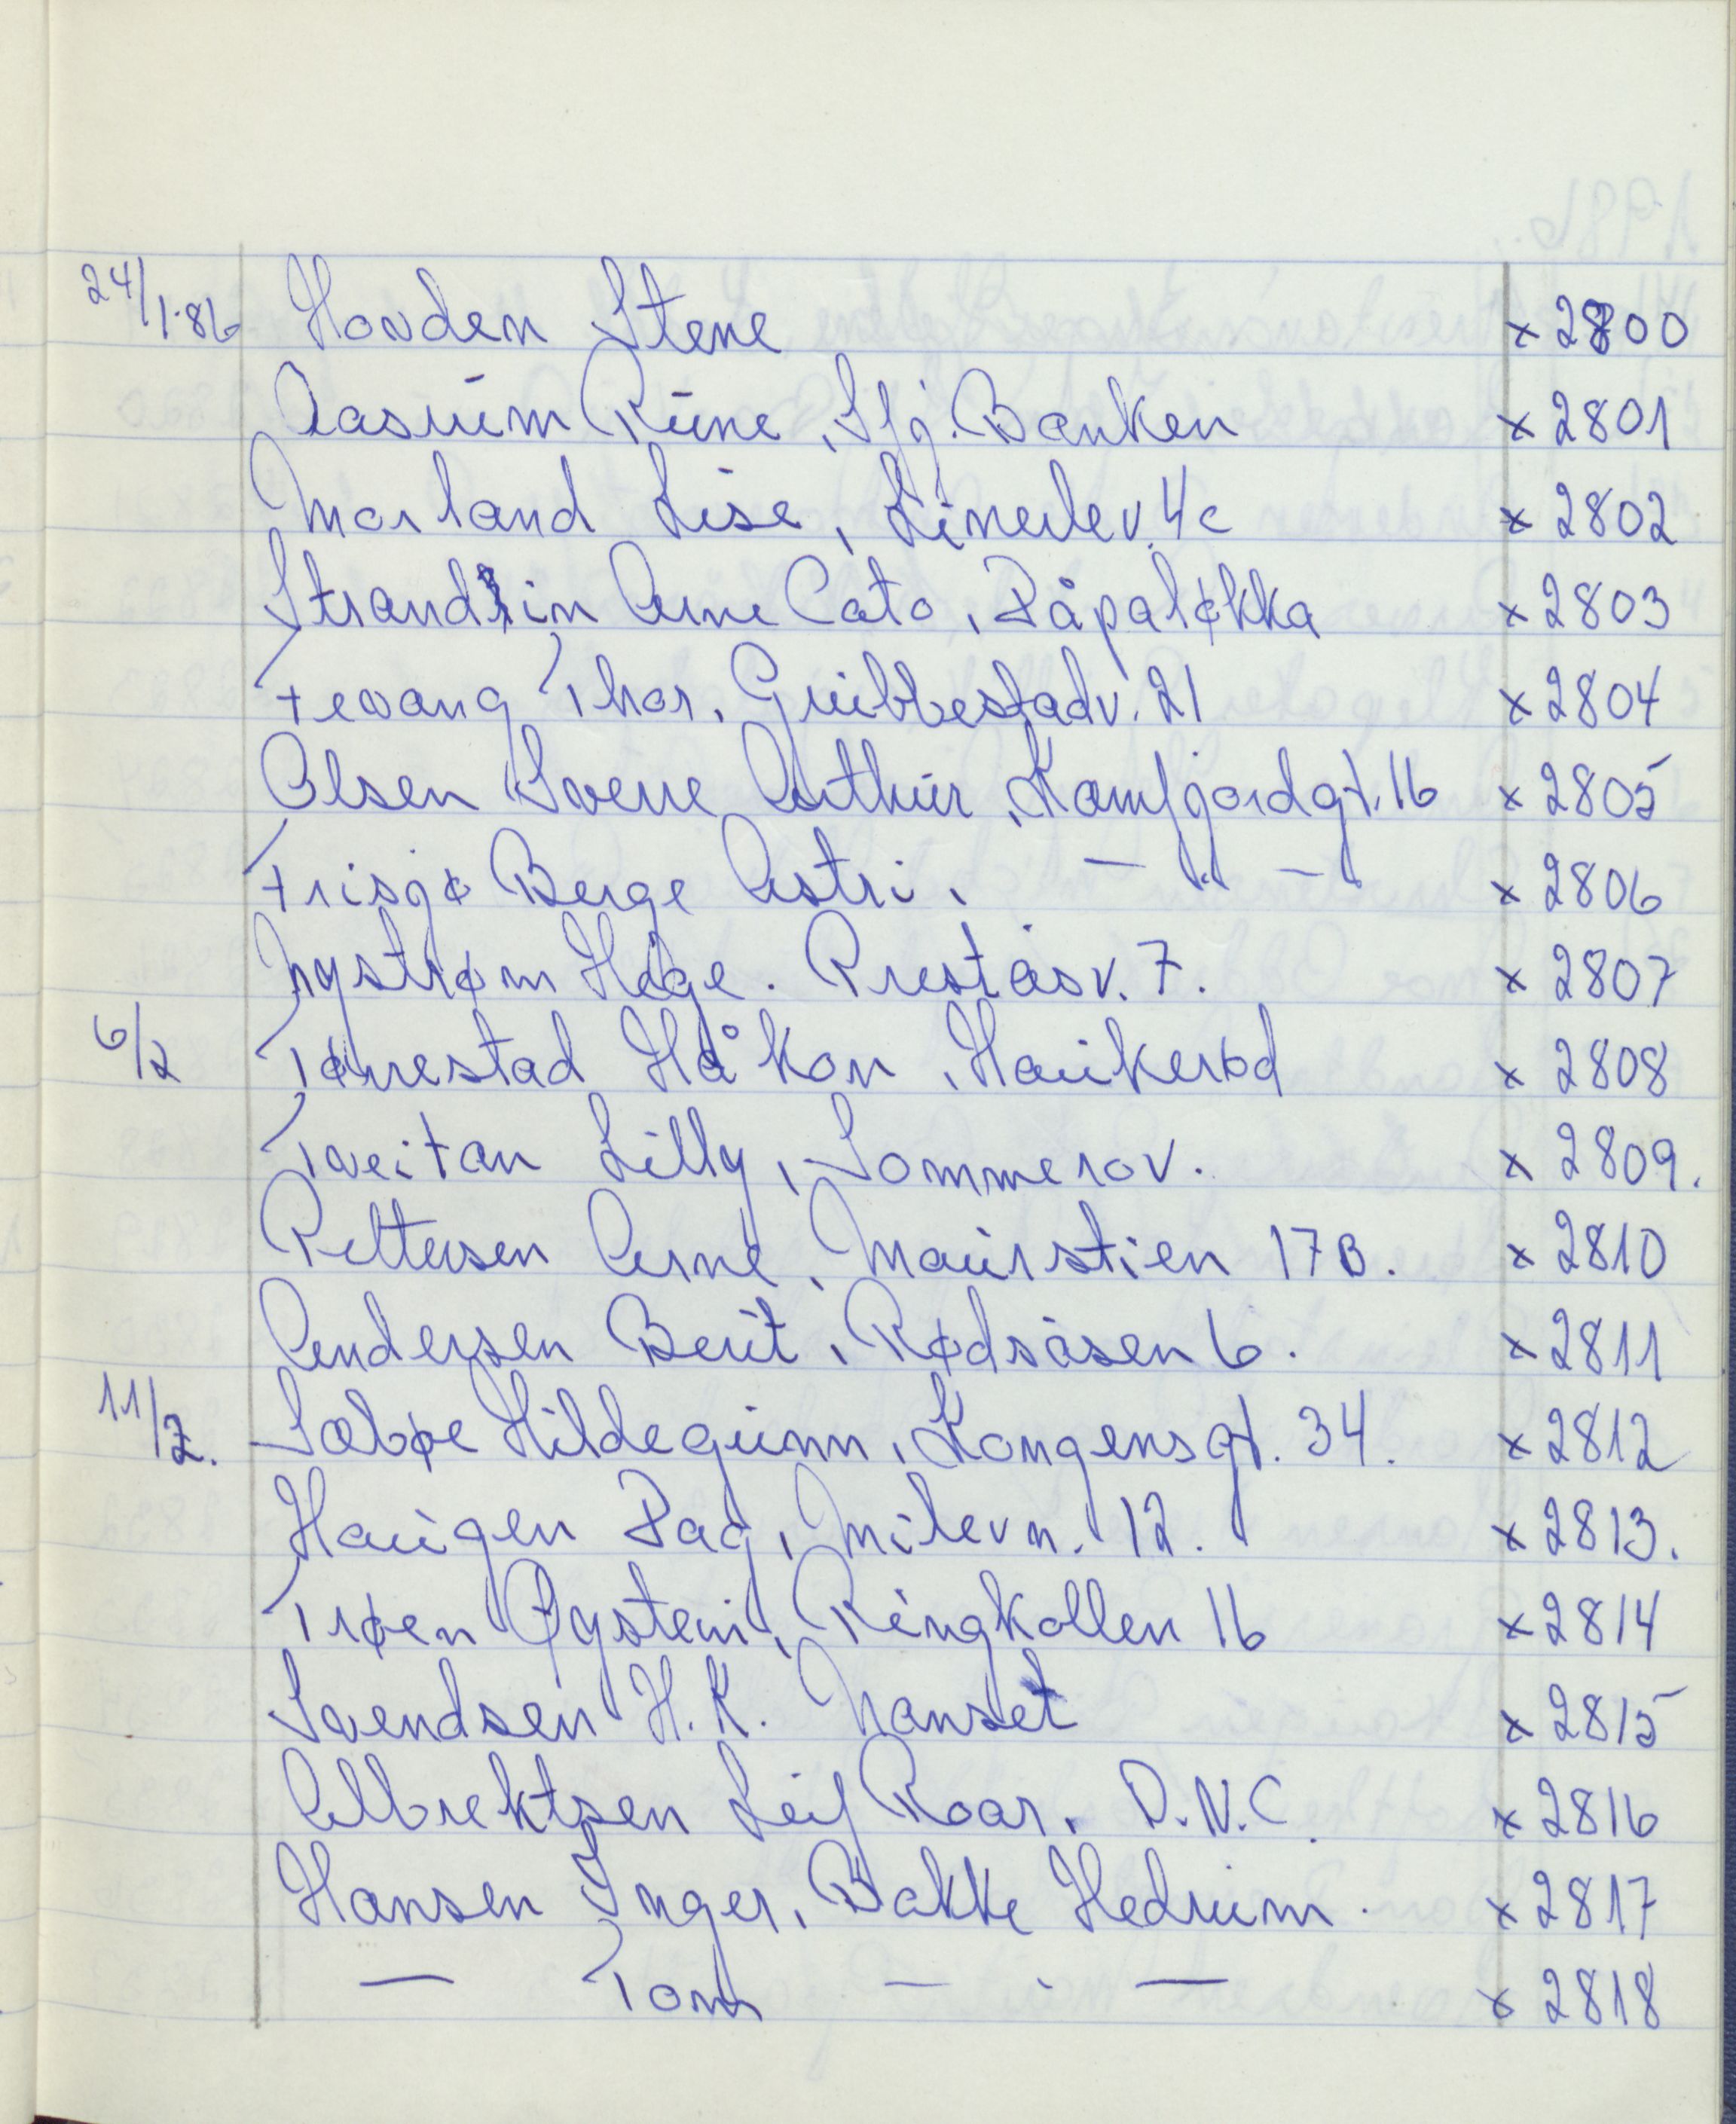 24/1-86 Hovden Stene x 2800
Aasrum Rune, Sfj. Banken x 2801
Morland Lise, Linerlev. 4c x 2802
Strandlin Arne Cato, Påpaløkka x 2803
Fevang Thor. Grübbestadv. 21 x 2804
Olsen Sverre Arthur, Kamfjordgt. 16 x 2805
Frisjø Berge Astri, — " — x 2806
Nystrøm Hege. Preståsv. 7. x 2807
6/2 Tørrestad Håkon, Haukerød x 2808
Tveitan Lilly, Sommerov. x 2809.
Pettersen Arne, Maurstien 17B. x 2810
Andersen Berit, Rødsåsen 6. x 2811
11/2. Sæbøe Hildegunn, Kongensgt. 34. x 2812
Haugen Dag, Milevn. 12. x 2813.
Trøen Øystein, Ringkollen 16 x 2814
Svendsen H.K. Nanset x 2815
Albrektsen Leif Roar. D.N.C. x 2816
Hansen Inger, Bakke Hedrum. x 2817
— Tom — . — x 2818